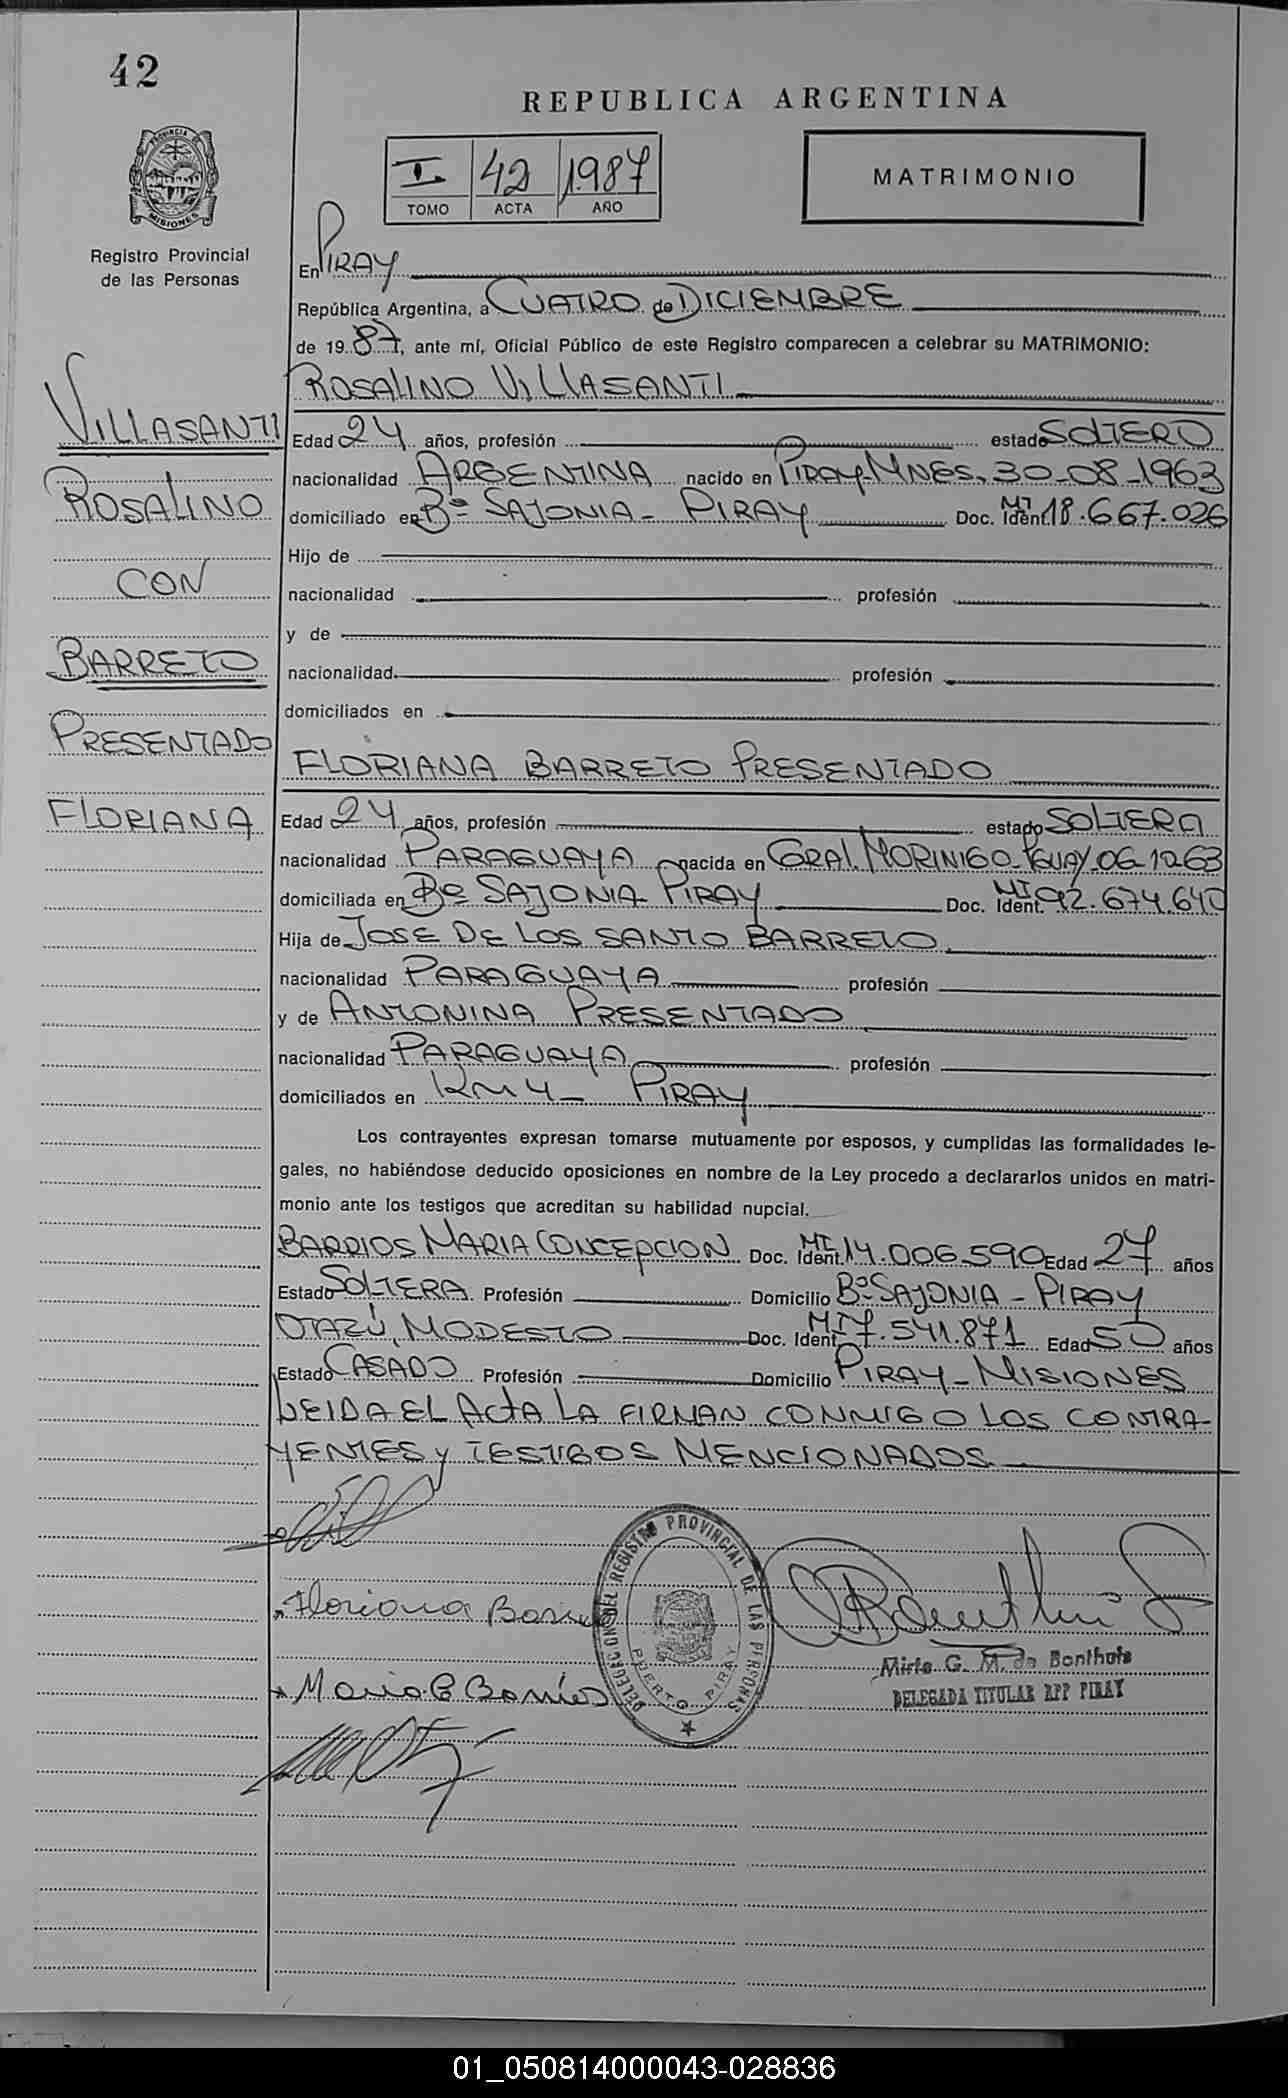 42
REPUBLICA ARGENTINA
PROVINCIA DE
MISIONES
I. 42 1987
TOMO ACTA AÑO
MATRIMONIO
Registro Provincial
de las Personas
En PIRAY
República Argentina, a CUATRO de DICIEMBRE
de 1987, ante mí, Oficial Público de este Registro comparecen a celebrar su MATRIMONIO:
ROSALINO VILLASANTI
VILLASANTI
ROSALINO
CON
BARRETO
PRESENTADO
FLORIANA
Edad 24 años, profesión estado SOLTERO
nacionalidad ARGENTINA nacido en PIRAY-MNES. 30-08-1963
domiciliado en Bº SAJONIA - PIRAY Doc. Ident. MI 18.667.026
Hijo de
nacionalidad profesión
y de
nacionalidad profesión
domiciliados en
FLORIANA BARRETO PRESENTADO
Edad 24 años, profesión estado SOLTERA
nacionalidad PARAGUAYA nacida en GRAL. MORINIGO - PGUAY. 06-1263
domiciliada en Bº SAJONIA PIRAY Doc. Ident. MI 92.674.640
Hija de JOSE DE LOS SANTO BARRETO
nacionalidad PARAGUAYA profesión
y de ANTONINA PRESENTADO
nacionalidad PARAGUAYA profesión
domiciliados en KM 4 - PIRAY
Los contrayentes expresan tomarse mutuamente por esposos, y cumplidas las formalidades le-
gales, no habiéndose deducido oposiciones en nombre de la Ley procedo a declararlos unidos en matri-
monio ante los testigos que acreditan su habilidad nupcial.
BARRIOS MARIA CONCEPCION Doc. Ident. MI 14.006.590 Edad 27 años
Estado SOLTERA Profesión Domicilio Bº SAJONIA - PIRAY
OTAZÚ, MODESTO Doc. Ident. MI 7.541.871 Edad 50 años
Estado CASADO Profesión Domicilio PIRAY - MISIONES
LEIDA EL ACTA LA FIRMAN CONMIGO LOS CONTRA-
YENTES y TESTIGOS MENCIONADOS
DELEGACION DEL REGISTRO PROVINCIAL DE LAS PERSONAS
PUERTO PIRAY
Floriana Barre
Maria C Barrios
Mirta G. M. de Bonthuis
DELEGADA TITULAR RPP PIRAY
01_050814000043-028836